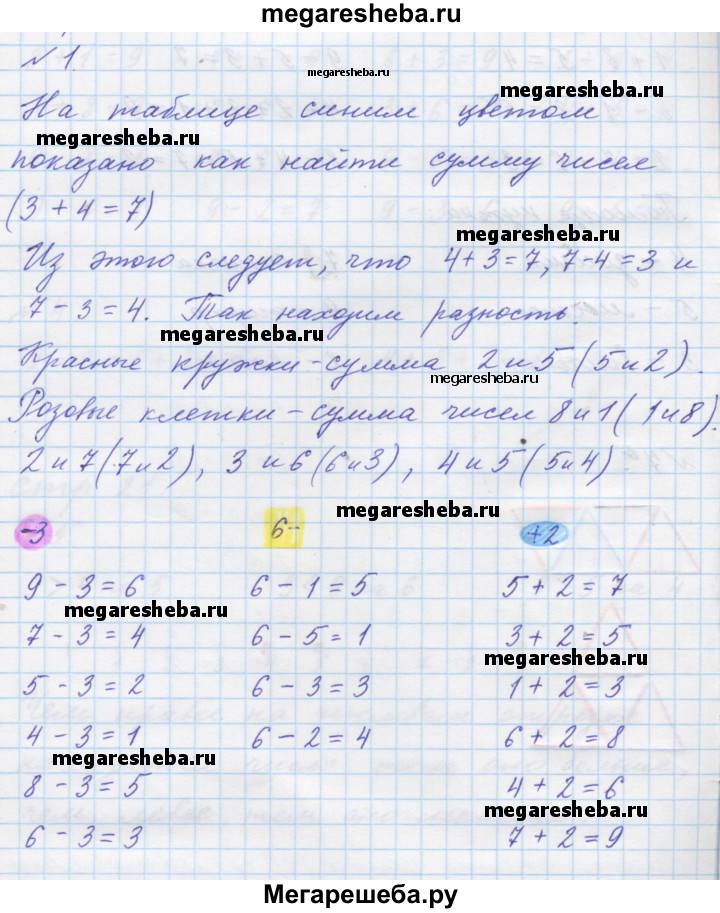 megaresheba.ru
№1.
megaresheba.ru
На таблице синим цветом
megaresheba.ru
показано как найти сумму чисел
(3 + 4 = 7)
megaresheba.ru
Из этого следует, что 4+3=7, 7-4=3 и
7 - 3 = 4. Так находим разность.
megaresheba.ru
Красные кружки - сумма 2 и 5 (5 и 2).
megaresheba.ru
Розовые клетки - сумма чисел 8 и 1 (1 и 8).
2 и 7 (7 и 2), 3 и 6 (6 и 3), 4 и 5 (5 и 4).
megaresheba.ru
-3 6- +2
9 - 3 = 6 6 - 1 = 5 5 + 2 = 7
megaresheba.ru
7 - 3 = 4 6 - 5 = 1 3 + 2 = 5
megaresheba.ru
5 - 3 = 2 6 - 3 = 3 1 + 2 = 3
4 - 3 = 1 6 - 2 = 4 6 + 2 = 8
megaresheba.ru
8 - 3 = 5 4 + 2 = 6
megaresheba.ru
6 - 3 = 3 7 + 2 = 9
Мегарешеба.ру